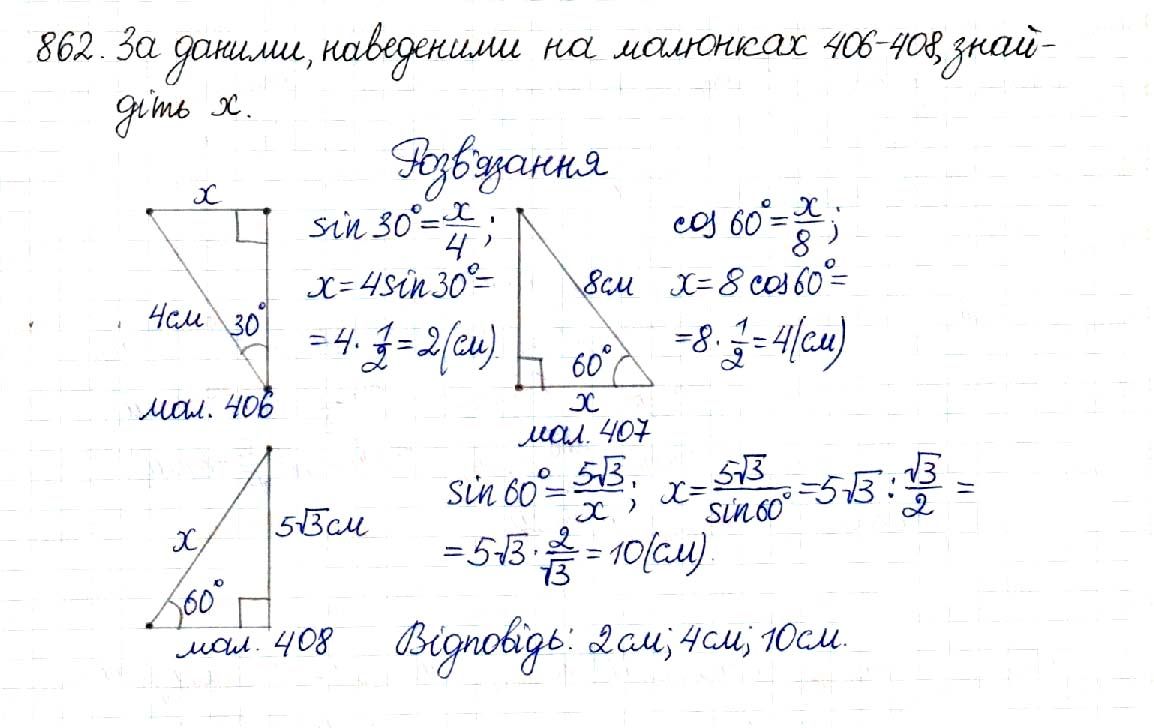 862. За даними, наведеними на малюнках 406-408, знай-
діть x.
Розв'язання
x
4см
30°
мал. 406
sin 30° = x/4;
x = 4 sin 30° =
= 4 · 1/2 = 2 (см).
8см
60°
x
мал. 407
cos 60° = x/8;
x = 8 cos 60° =
= 8 · 1/2 = 4 (см)
x
5√3 см
60°
мал. 408
sin 60° = 5√3/x; x = 5√3/sin 60° = 5√3 : √3/2 =
= 5√3 · 2/√3 = 10 (см).
Відповідь: 2 см; 4 см; 10 см.